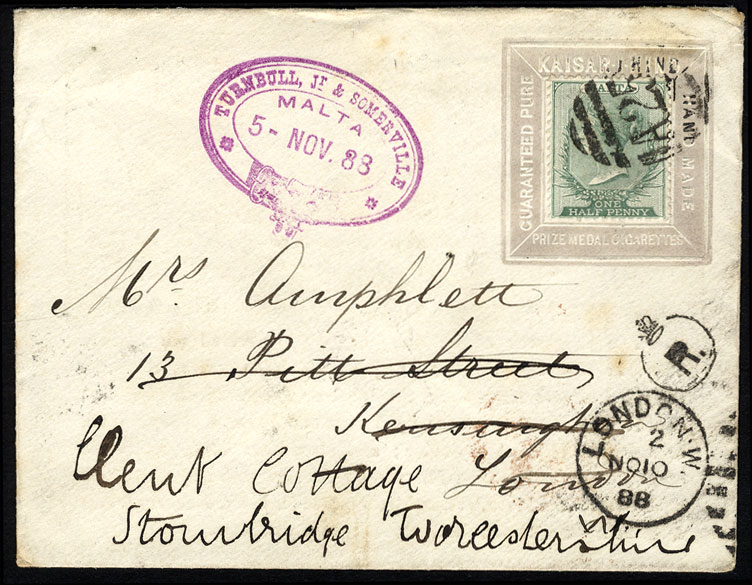 TURNBULL, Jr & SOMERVILLE
MALTA
5- NOV. 88
KAISAR-I-HIND
GUARANTEED PURE
HAND MADE
MALTA
A25
ONE
HALF PENNY
PRIZE MEDAL CIGARETTES
Mrs Amphlett
R.
13 Pitt Street
Kensington
LONDON·W.
2
NO10
88
Clent Cottage London
Stourbridge Worcestershire